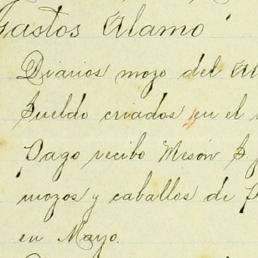 Gastos Alamo
Diarios mozo del Al
Sueldo criados en el
Pago recibo Mesón B
mozos y caballos de
en Mayo.